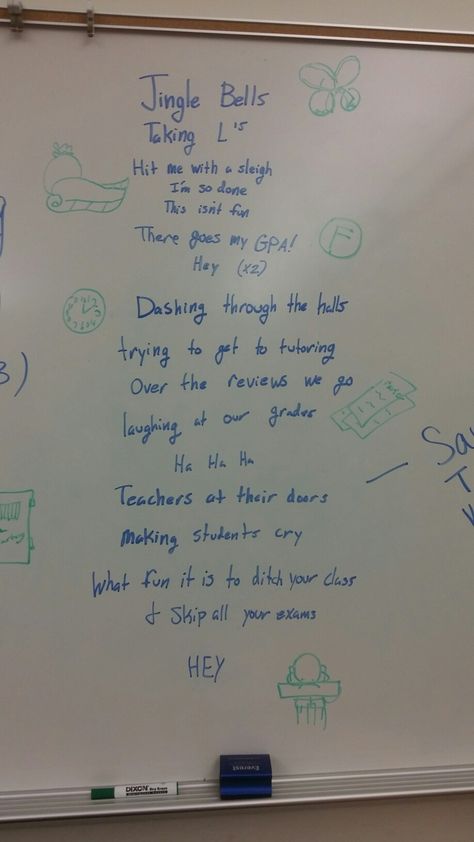 Jingle Bells
Taking L's
Hit me with a sleigh
I'm so done
This isn't fun
There goes my GPA!
F
Hey (x2)
Dashing through the halls
trying to get to tutoring
Over the reviews we go
laughing at our grades
Ha Ha Ha
Teachers at their doors
making students cry
What fun it is to ditch your class
& Skip all your exams
HEY
Everest
DIXON